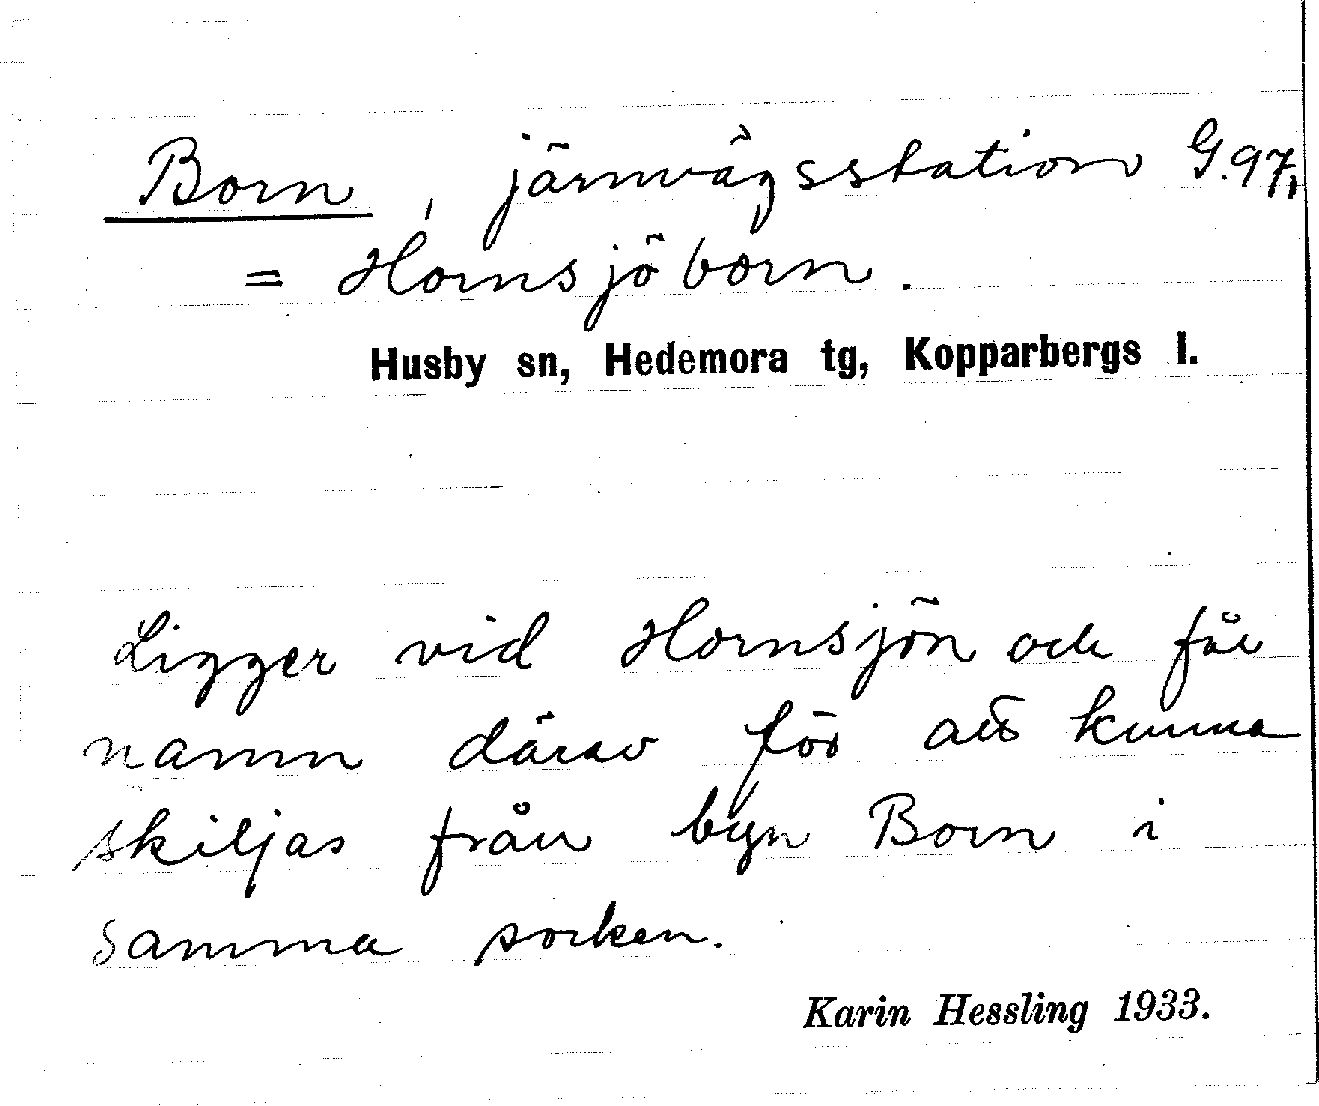 Born, järnvägsstation G.97,
= Hornsjöborn.
Husby sn, Hedemora tg, Kopparbergs l.
Ligger vid Hornsjön och får
namn därav för att kunna
skiljas från byn Born i
samma socken.
Karin Hessling 1933.